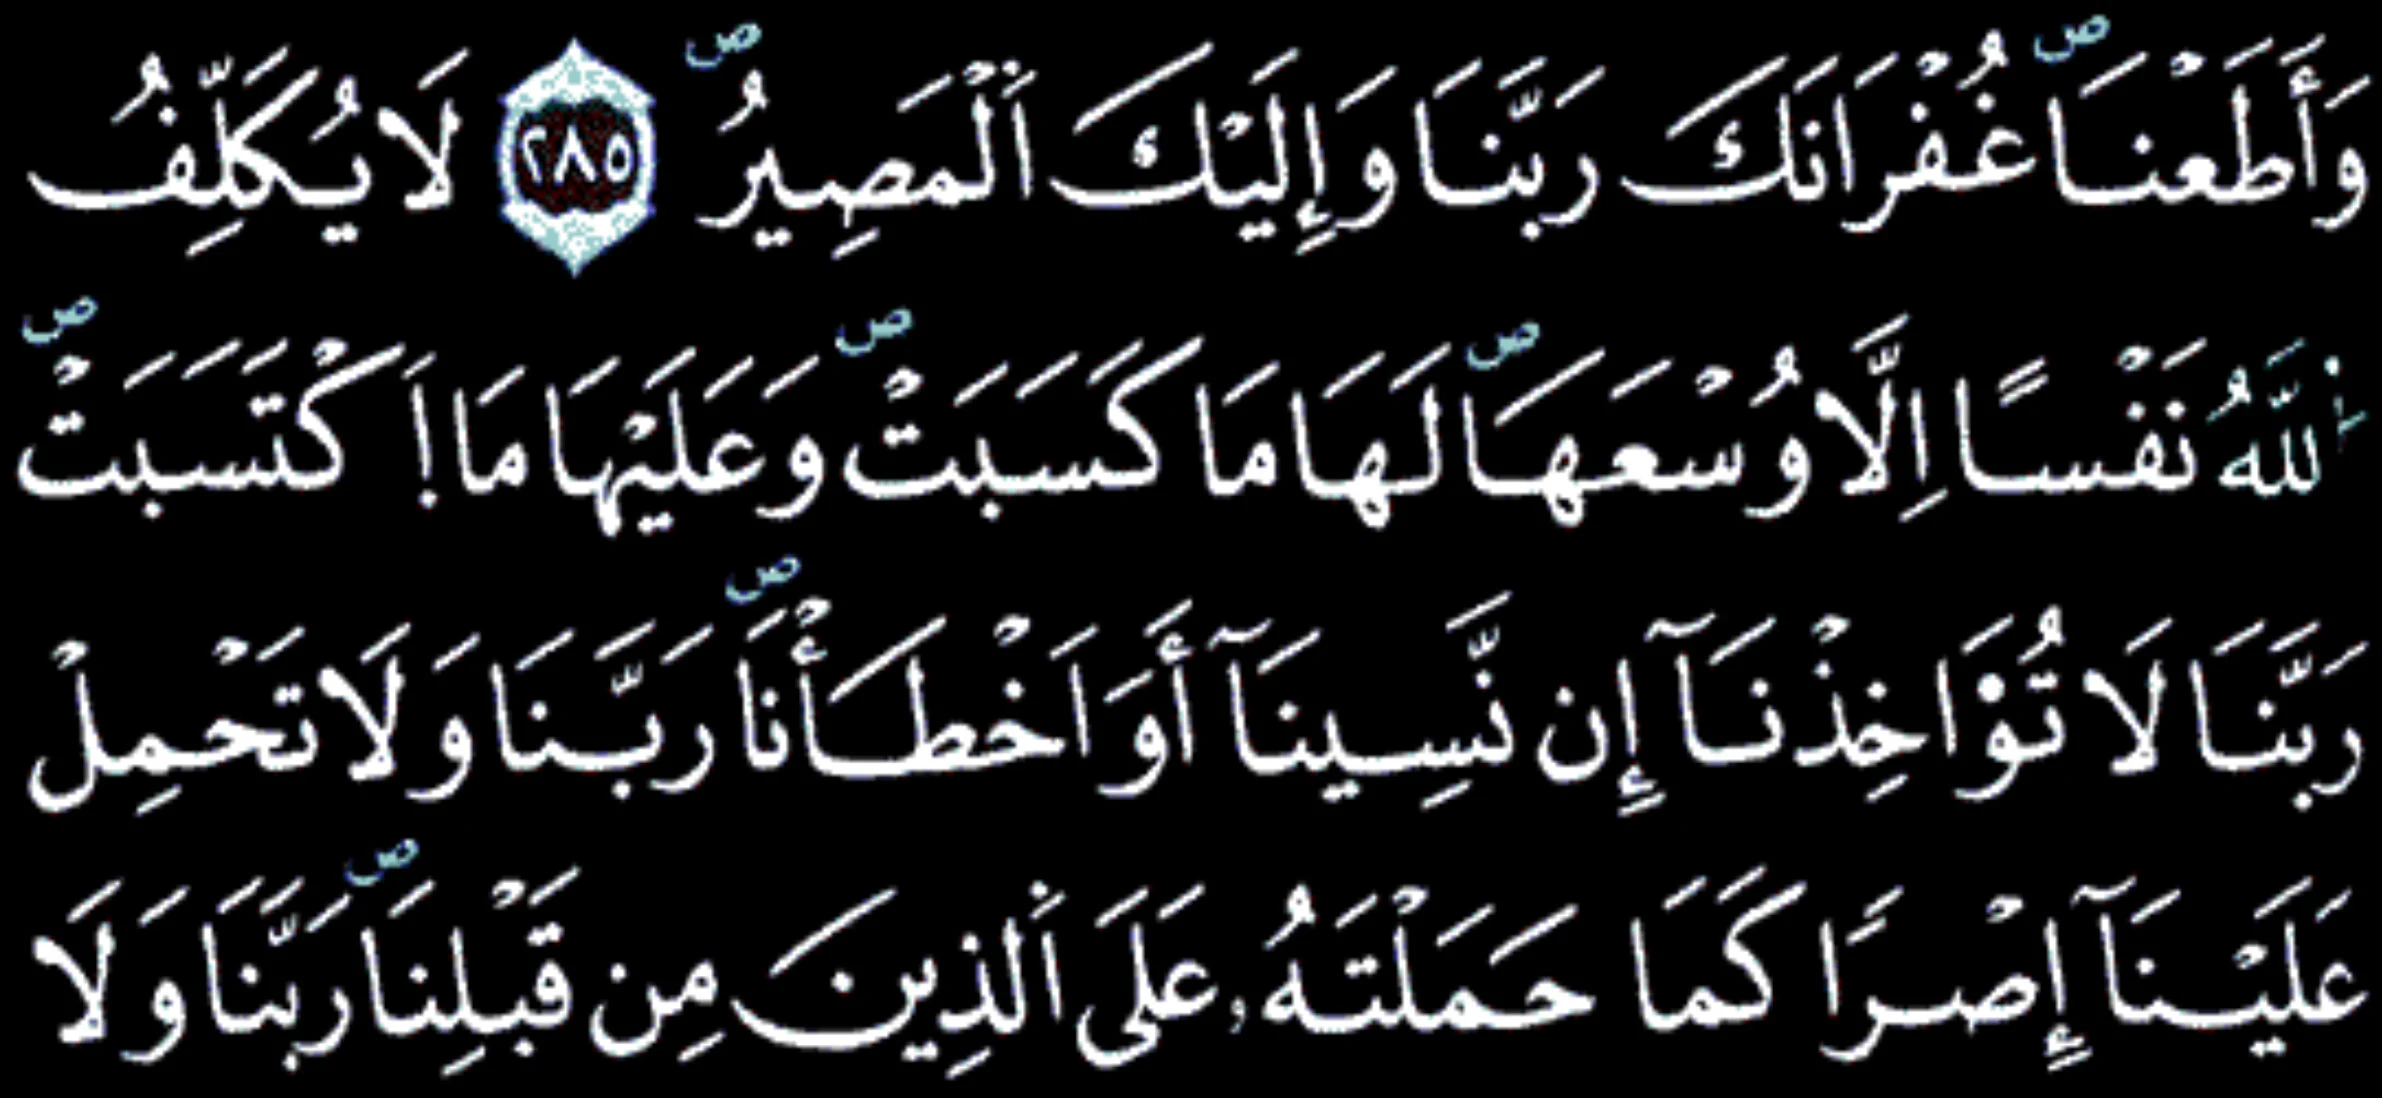 وَأَطَعْنَاۖ غُفْرَانَكَ رَبَّنَا وَإِلَيْكَ اَ۬لْمَصِيرُۖ ٢٨٥ لَا يُكَلِّفُ
اُ۬للَّهُ نَفْسًا اِلَّا وُسْعَهَاۖ لَهَا مَا كَسَبَتْۖ وَعَلَيْهَا مَا اَ۪كْتَسَبَتْۖ
رَبَّنَا لَا تُؤَاخِذْنَآ إِن نَّسِينَآ أَوَ اَخْطَأْنَاۖ رَبَّنَا وَلَا تَحْمِلْ
عَلَيْنَآ إِصْرًا كَمَا حَمَلْتَهُۥ عَلَى اَ۬لذِينَ مِن قَبْلِنَاۖ رَبَّنَا وَلَا